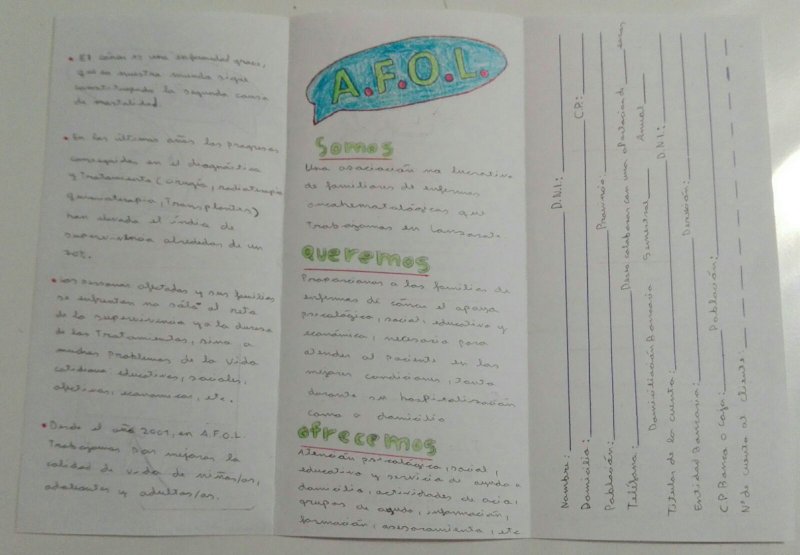 • El cáncer es una enfermedad grave,
que en nuestro mundo sigue
constituyendo la segunda causa
de mortalidad.
• En los últimos años los progresos
conseguidos en el diagnóstico
y Tratamiento (cirugía, radioterapia
quimioterapia, Transplantes)
han elevado el índice de
supervivencia alrededor de un
70%.
• Las personas afectadas y sus familias
se enfrentan no sólo al reto
de la supervivencia y a la dureza
de los Tratamientos, sino a
muchos problemas de la vida
cotidiana educativos, sociales,
afectivos, economicos, etc.
• Desde el año 2001, en A.F.O.L.
Trabajamos por mejorar la
calidad de vida de niños/as,
adolentes y adultos/as.
A.F.O.L.
Somos
Una asociación no lucrativa
de familiares de enfermos
oncohematológicos que
Trabajamos en Lanzarote
queremos
Proporcionar a las familias de
enfermos de cáncer el apoyo
psicológico, social, educativo y
económico, necesario para
atender al paciente en las
mejores condiciones, tanto
durante su hospitalización
como a domicilio
ofrecemos
Atención psicológica, social,
educativo y servicio de ayuda a
domicilio, actividades de ocio,
grupos de ayuda, información,
formación, asesoramiento, etc
Nombre: D.N.I.:
Domicilio: C.P.:
Población: Provincia:
Teléfono: Deseo colaborar con una aportación de euros
Domiciliación Bancaria Semestral Anual
Titular de la cuenta: D.N.I.:
Entidad Bancaria: Dirección:
C.P Banco o Caja: Población:
Nº de cuenta al cliente